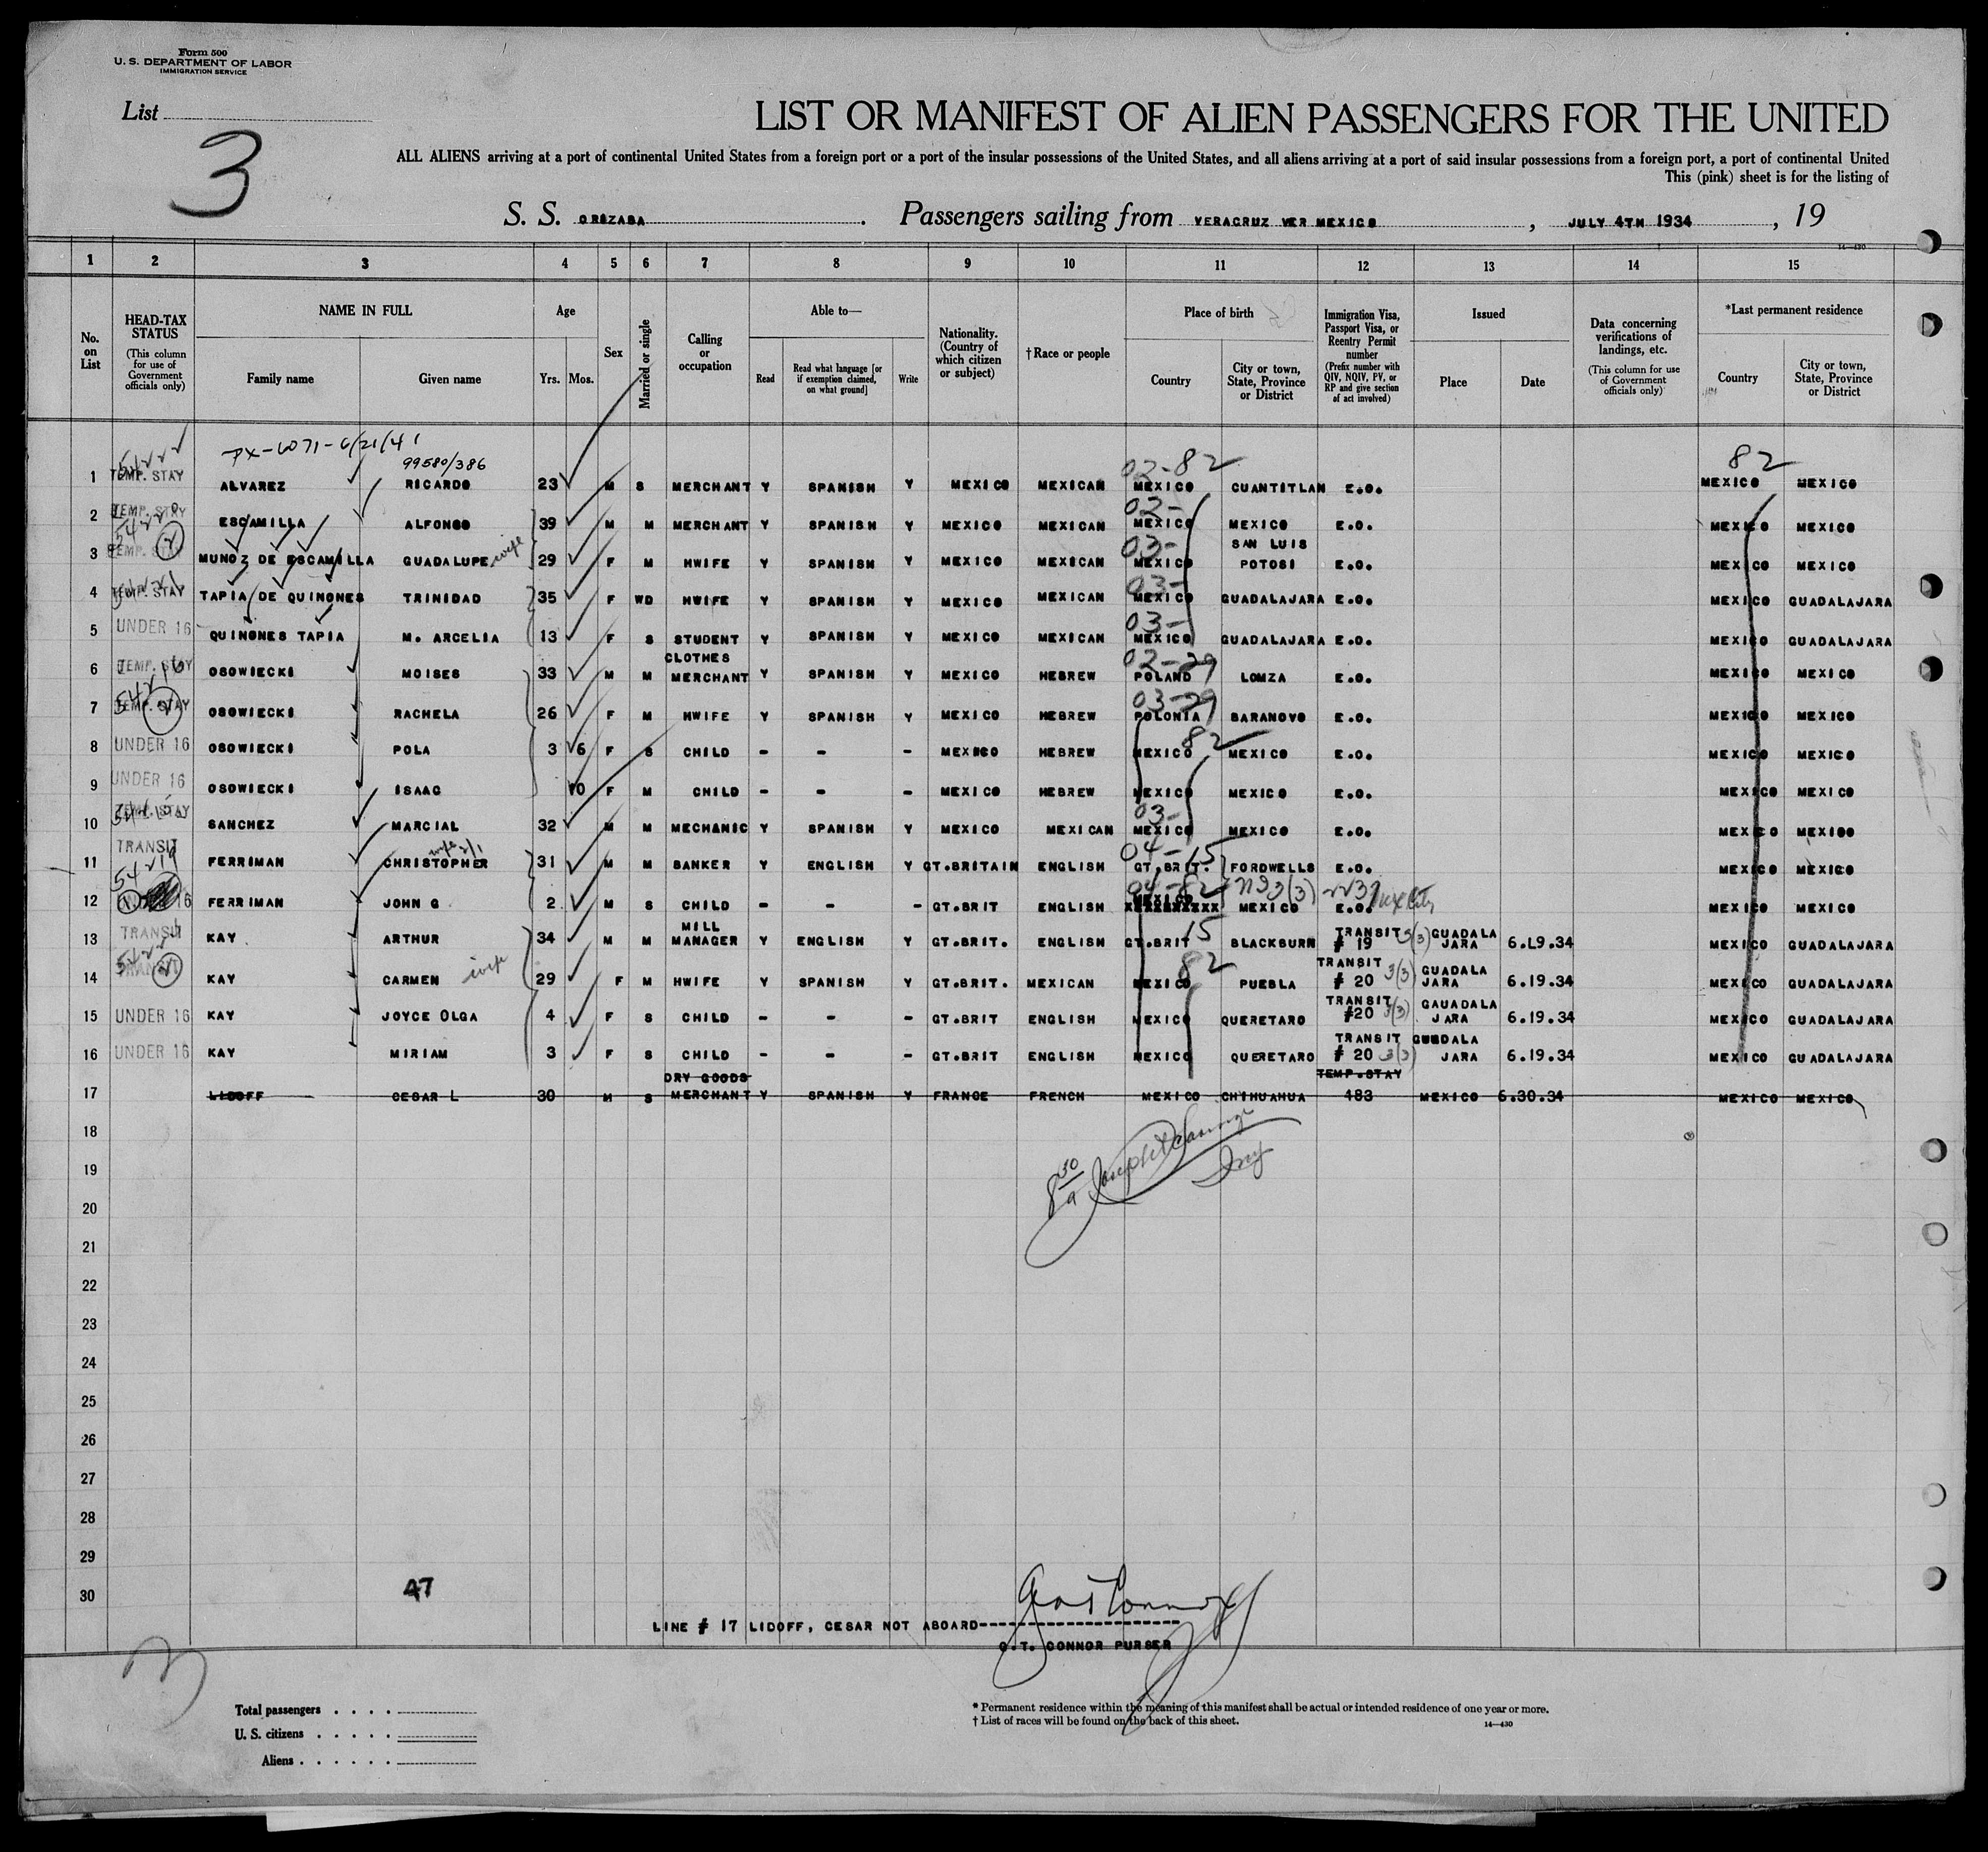 Form 500
U. S. DEPARTMENT OF LABOR
IMMIGRATION SERVICE
List
3
LIST OR MANIFEST OF ALIEN PASSENGERS FOR THE UNITED
ALL ALIENS arriving at a port of continental United States from a foreign port or a port of the insular possessions of the United States, and all aliens arriving at a port of said insular possessions from a foreign port, a port of continental United
This (pink) sheet is for the listing of
S. S. ORIZABA . Passengers sailing from VERACRUZ VER MEXICO , JULY 4TH 1934 , 19
14—430
1 2 3 4 5 6 7 8 9 10 11 12 13 14 15
No. on List
HEAD-TAX STATUS
(This column for use of Government officials only)
NAME IN FULL
Family name
Given name
Age
Yrs. Mos.
Sex
Married or single
Calling or occupation
Able to—
Read
Read what language [or if exemption claimed, on what ground]
Write
Nationality. (Country of which citizen or subject)
† Race or people
Place of birth
Country
City or town, State, Province or District
Immigration Visa, Passport Visa, or Reentry Permit number
(Prefix number with QIV, NQIV, PV, or RP and give section of act involved)
Issued
Place
Date
Data concerning verifications of landings, etc.
(This column for use of Government officials only)
*Last permanent residence
Country
City or town, State, Province or District
99580/386
02-82 82
1 TEMP. STAY ALVAREZ RICARDO 23 M S MERCHANT Y SPANISH Y MEXICO MEXICAN MEXICO CUANTITLAN E.O. MEXICO MEXICO
02-
2 TEMP. STAY ESCAMILLA ALFONSO 39 M M MERCHANT Y SPANISH Y MEXICO MEXICAN MEXICO MEXICO E.O. MEXICO MEXICO
03- SAN LUIS
3 TEMP. STAY MUNOZ DE ESCAMILLA GUADALUPE wife 29 F M HWIFE Y SPANISH Y MEXICO MEXICAN MEXICO POTOSI E.O. MEXICO MEXICO
03-
4 TEMP. STAY TAPIA DE QUINONES TRINIDAD 35 F WD HWIFE Y SPANISH Y MEXICO MEXICAN MEXICO GUADALAJARA E.O. MEXICO GUADALAJARA
03-
5 UNDER 16 QUINONES TAPIA M. ARCELIA 13 F S STUDENT Y SPANISH Y MEXICO MEXICAN MEXICO GUADALAJARA E.O. MEXICO GUADALAJARA
CLOTHES 02-29
6 TEMP. STAY OSOWIECKI MOISES 33 M M MERCHANT Y SPANISH Y MEXICO HEBREW POLAND LOMZA E.O. MEXICO MEXICO
03-29
7 TEMP. STAY OSOWIECKI RACHELA 26 F M HWIFE Y SPANISH Y MEXICO HEBREW POLONIA BARANOVO E.O. MEXICO MEXICO
8 UNDER 16 OSOWIECKI POLA 3 6 F S CHILD - - - MEXICO HEBREW MEXICO 82 MEXICO E.O. MEXICO MEXICO
9 UNDER 16 OSOWIECKI ISAAC F M CHILD - - MEXICO HEBREW MEXICO MEXICO E.O. MEXICO MEXICO
03-
10 TEMP. STAY SANCHEZ MARCIAL 32 M M MECHANIC Y SPANISH Y MEXICO MEXICAN MEXICO MEXICO E.O. MEXICO MEXICO
04-15
11 TRANSIT FERRIMAN CHRISTOPHER 31 M M BANKER Y ENGLISH Y GT.BRITAIN ENGLISH GT.BRIT. FORDWELLS E.O. MEXICO MEXICO
04-82
12 FERRIMAN JOHN G 2 M S CHILD - - - GT.BRIT ENGLISH MEXICO XXXXXXXXXX MEXICO E.O. MEXICO MEXICO
MILL TRANSIT GUADALA
13 TRANSIT KAY ARTHUR 34 M M MANAGER Y ENGLISH Y GT.BRIT. ENGLISH GT.BRIT 15 BLACKBURN # 19 JARA 6.L9.34 MEXICO GUADALAJARA
82 TRANSIT 3(3) GUADALA
14 TRANSIT KAY CARMEN wife 29 F M HWIFE Y SPANISH Y GT.BRIT. MEXICAN MEXICO PUEBLA # 20 JARA 6.19.34 MEXICO GUADALAJARA
TRANSIT 3(3) GAUADALA
15 UNDER 16 KAY JOYCE OLGA 4 F S CHILD - - - GT.BRIT ENGLISH MEXICO QUERETARO #20 JARA 6.19.34 MEXICO GUADALAJARA
TRANSIT GUADALA
16 UNDER 16 KAY MIRIAM 3 F S CHILD - - - GT.BRIT ENGLISH MEXICO QUERETARO # 20 3(3) JARA 6.19.34 MEXICO GUADALAJARA
DRY GOODS TEMP.STAY
17 LIDOFF CESAR L 30 M S MERCHANT Y SPANISH Y FRANCE FRENCH MEXICO CHIHUAHUA 483 MEXICO 6.30.34 MEXICO MEXICO
18
19
20
21
22
23
24
25
26
27
28
29
30
47
LINE # 17 LIDOFF, CESAR NOT ABOARD--------------------
CONNOR PURSER
3
Total passengers . . . .
U. S. citizens . . . . .
Aliens . . . . . .
* Permanent residence within the meaning of this manifest shall be actual or intended residence of one year or more.
† List of races will be found on the back of this sheet.
14—430